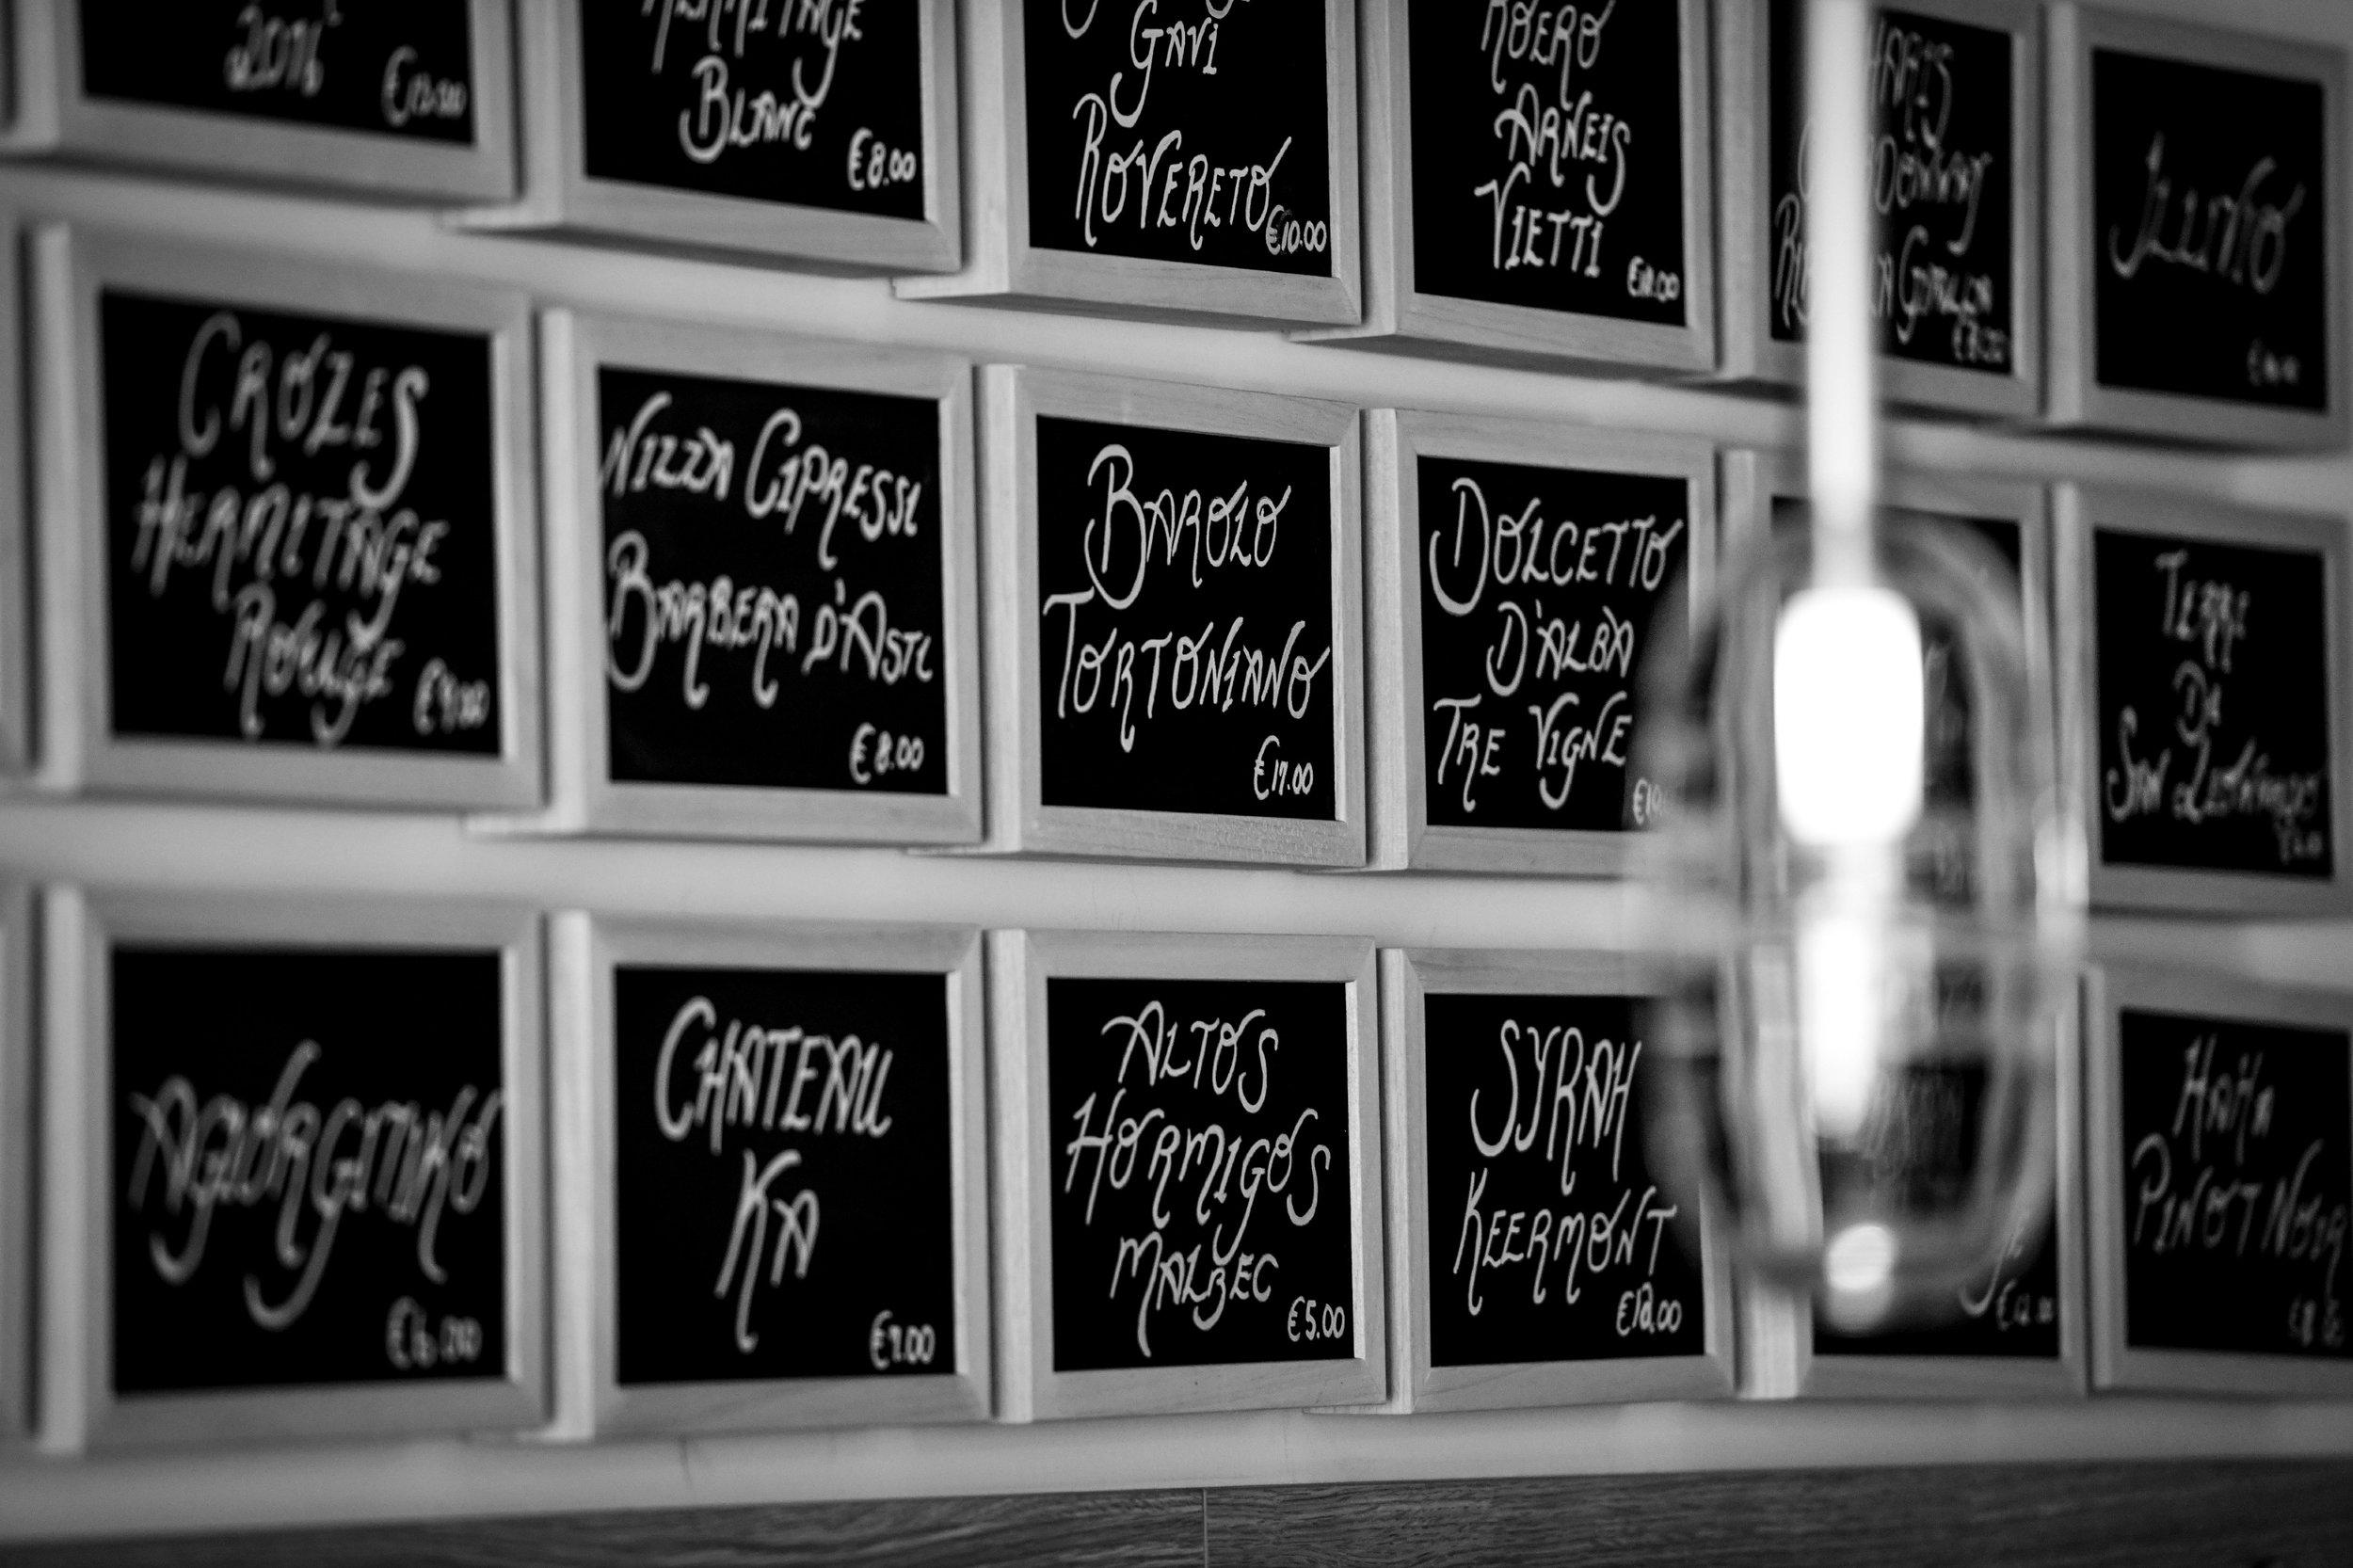 2016
HERMITAGE
BLANC
€8.00
GAVI
ROVERETO
€10.00
ROERO
ARNEIS
VIETTI
CROZES
HERMITAGE
ROUGE
€9.00
NIZZA CIPRESSI
BARBERA D'ASTI
€8.00
BAROLO
TORTONIANO
€17.00
DOLCETTO
D'ALBA
TRE VIGNE
TERRE
DI
SAN LEONARDO
AGIORGITIKO
€6.00
CHATEAU
KA
€7.00
ALTOS
HORMIGOS
MALBEC
€5.00
SYRAH
KEERMONT
€12.00
HAHA
PINOT NOIR